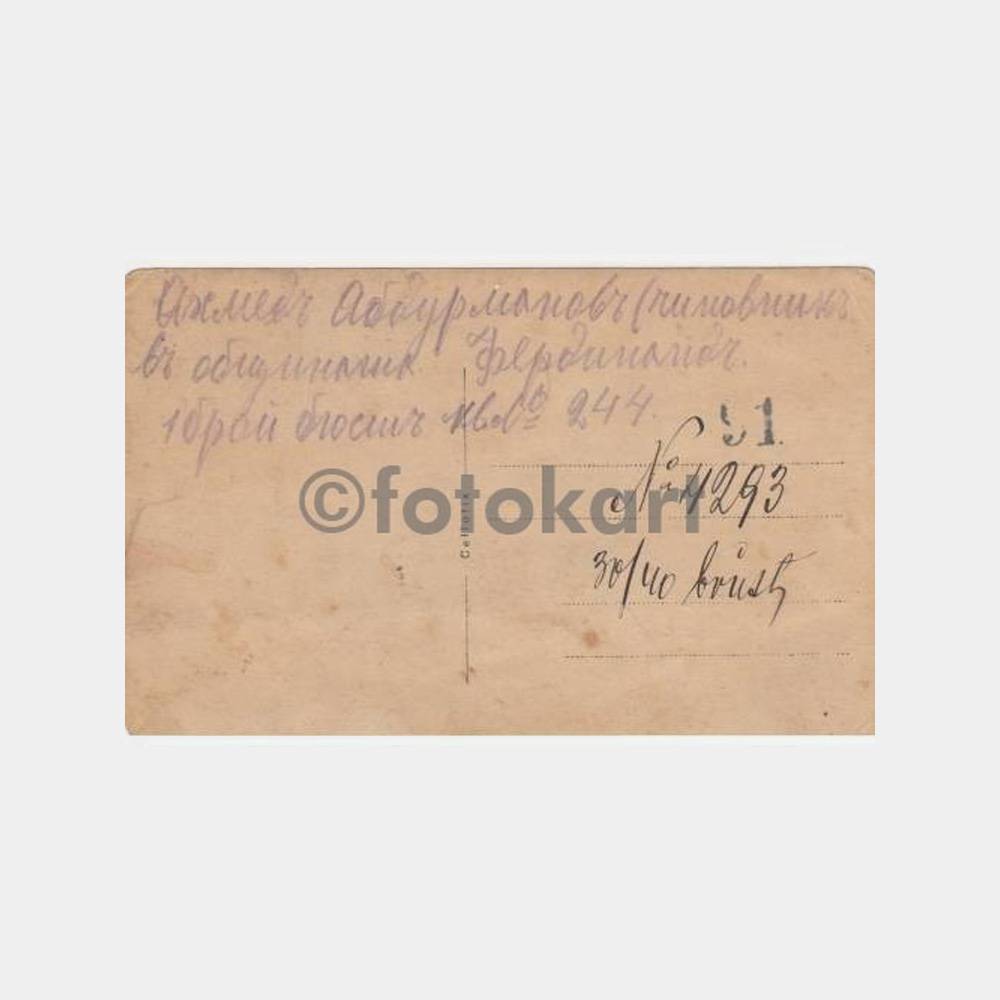 Ахмедъ Абдурмановъ (чиновникъ
въ общината Фердинандъ.
1 брой бюстъ кв. № 244.
91.
№ 4293
30/40 büst
Cellofix
©fotokart